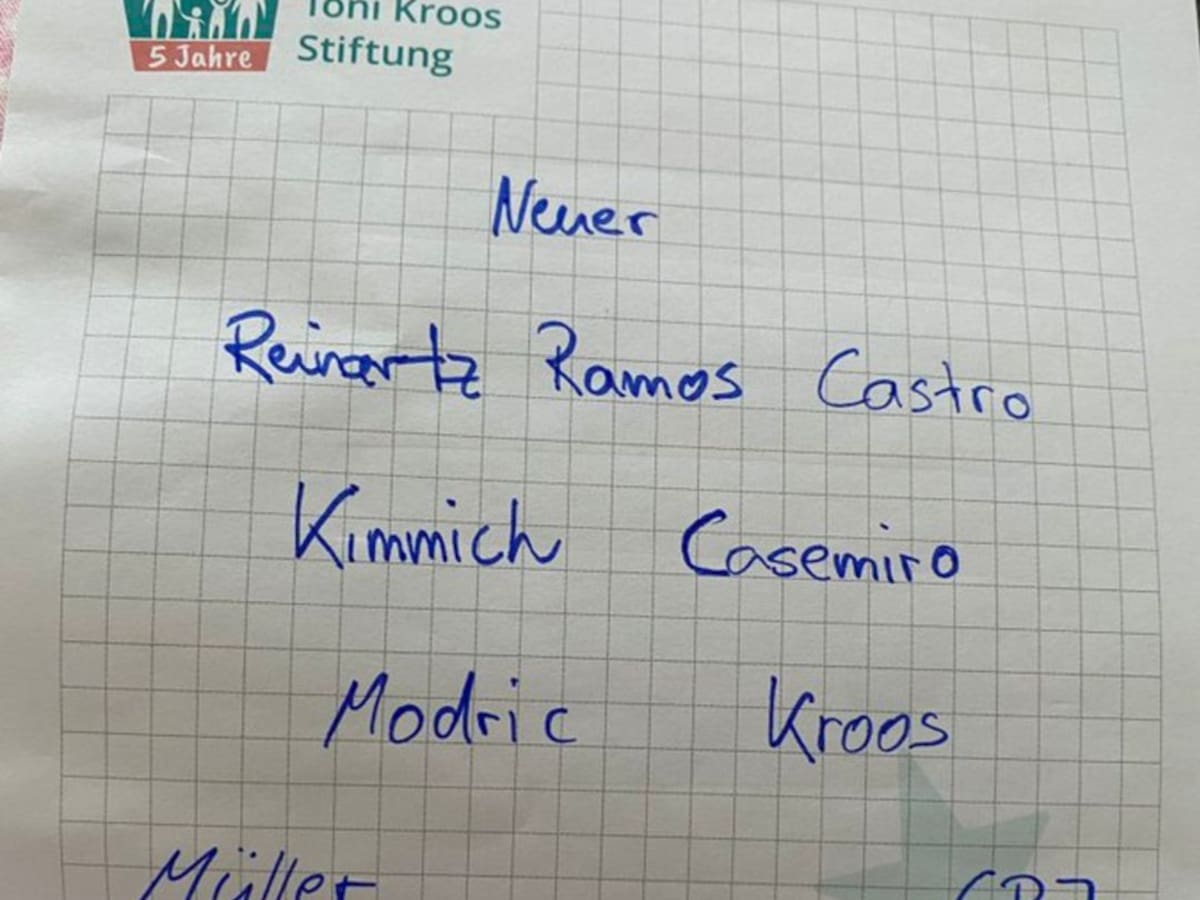 Toni Kroos
Stiftung
5 Jahre
Neuer
Reinartz Ramos Castro
Kimmich Casemiro
Modric Kroos
Müller CR7